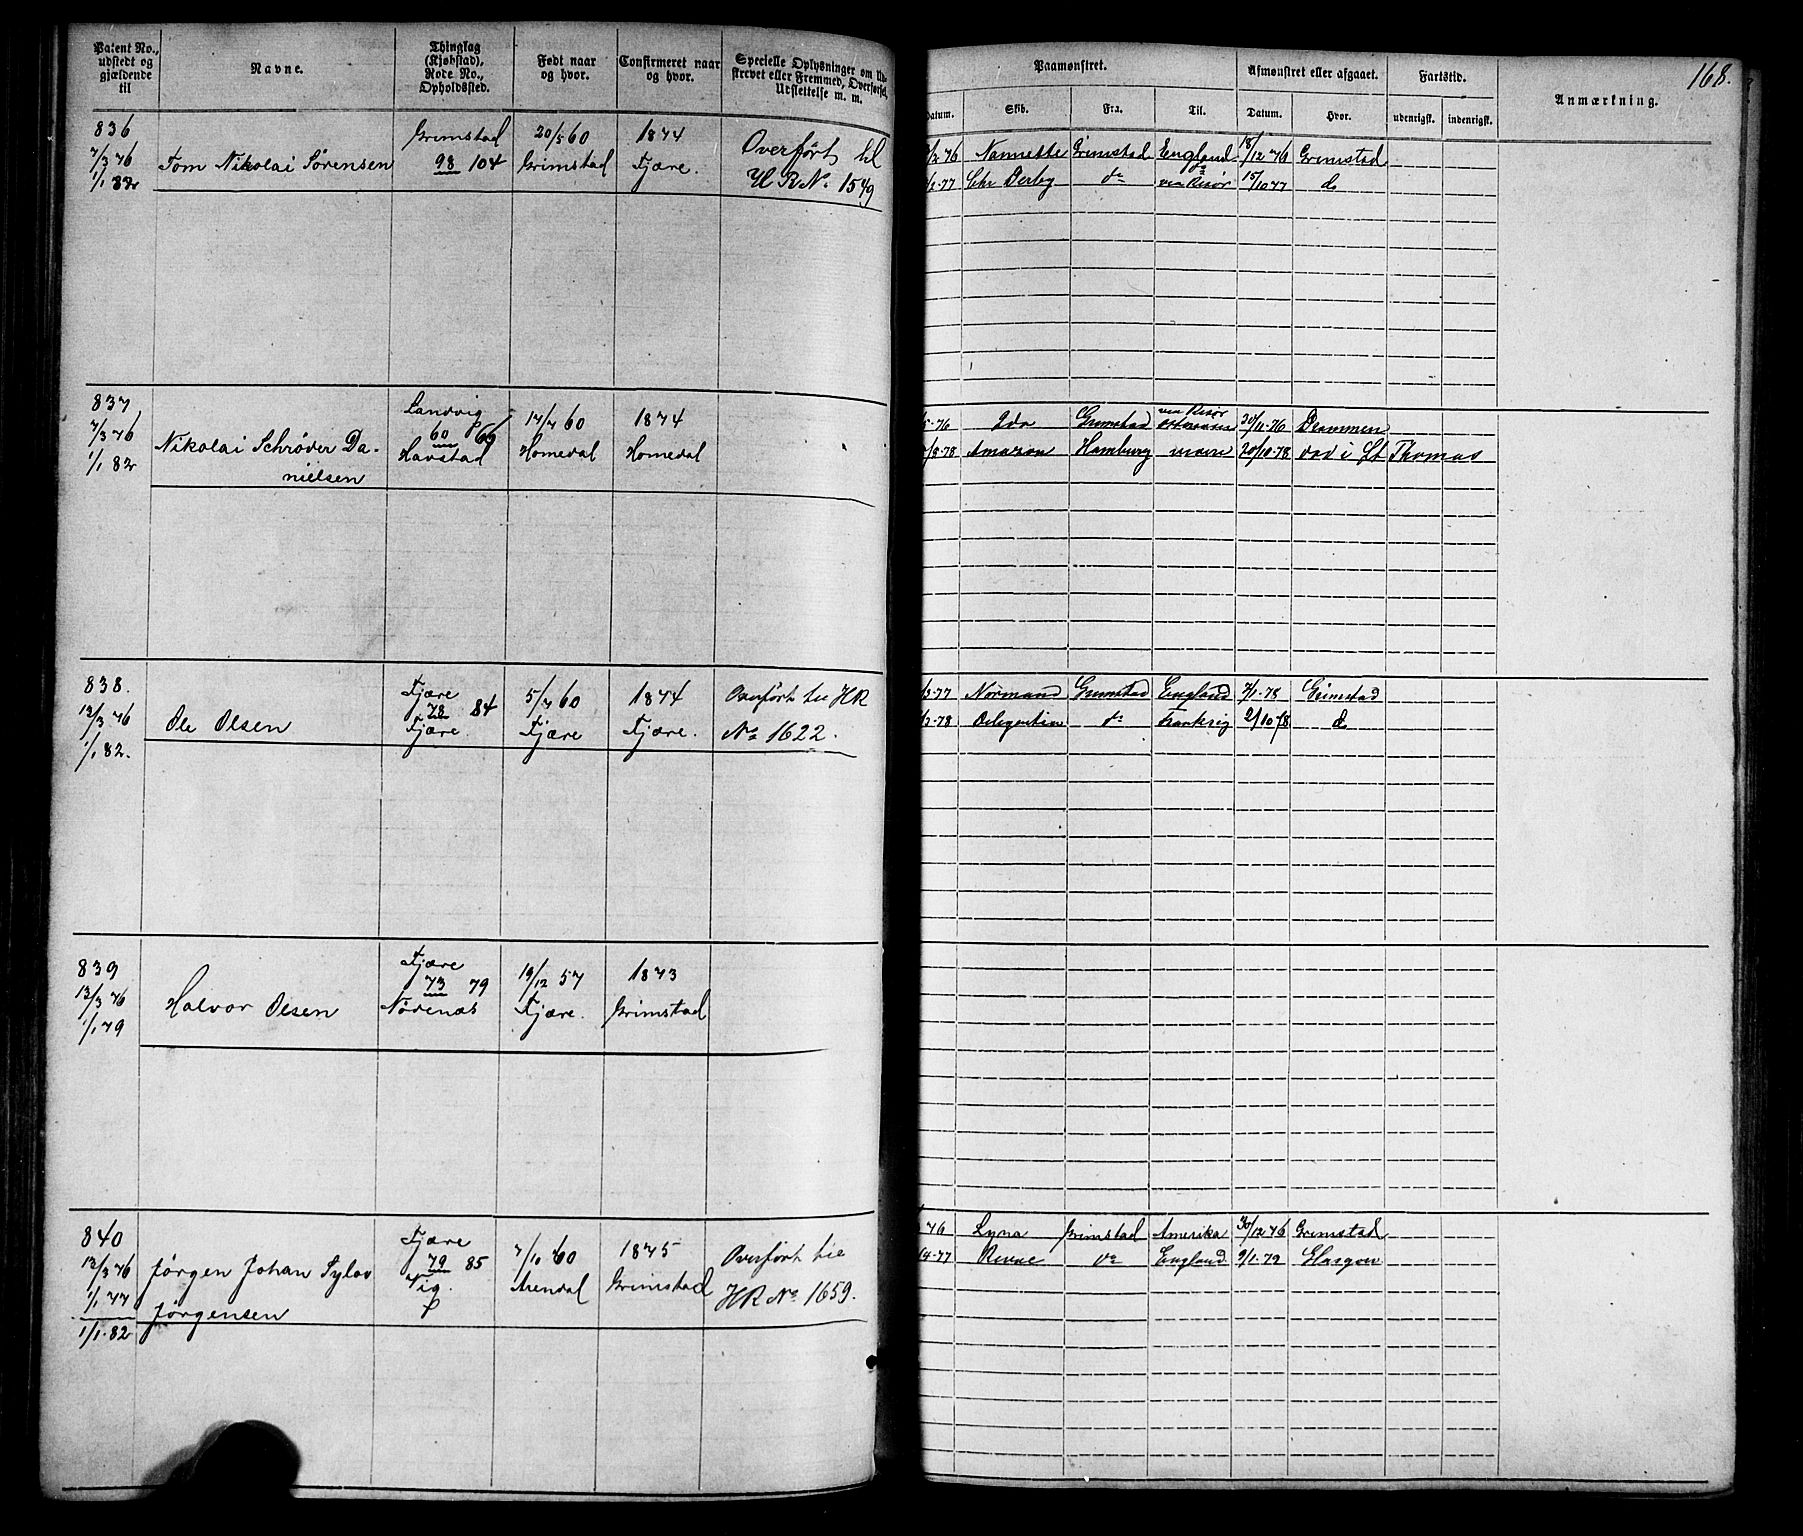 Patent No., udstedt og gjældende til
Navne.
Thinglag (Kjøbstad), Rode No., Opholdssted.
Født naar og hvor.
Confirmeret naar og hvor.
Specielle Oplysninger om
strevet eller Fremmed, Overførsel, Udslettelse m. m.
Paamønstret.
Afmønstret eller afgaaet.
Fartstid.
Anmærkning.
168.
Datum.
Skib.
Fra.
Til.
Datum.
Hvor.
udenrigsk.
indenrigsk.
836
7/3 76
1/1 82
Tom Nikolai Sørensen
Grimstad
98 104
20/5 60
Grimstad
1874
Fjære.
Overført til
HR No. 1549
76 Nannette Grimstad England 18/12 76 Grimstad
77 Chr Derby do via Risør 15/10 77 do
837
7/3 76
1/1 82
Nikolai Schrøder Da-
nielsen
Landvig
60 66
Havstad
17/7 60
Homedal
1874
Homedal
via Risør
76 Ida Grimstad 30/11-76 Drammen
78 Amazon Hamburg 20/10-78 død i St Thomas
838.
13/3 76
1/1 82.
Ole Olsen
Fjære
78 84
Fjære.
5/7 60
Fjære
1874
Fjære.
Overført til HR
No 1622.
3-77 Normand Grimstad England 7/1-78 Grimstad
78 do Frankrig 2/10 78 do
839
13/3 76
1/1 79
Halvor Olsen
Fjære
73 79
Nørenæs
19/12 57
Fjære.
1873
Grimstad
840
13/3 76
1/1 77
1/1-82
Jørgen Johan Sylov
Jørgensen
Fjære
79 85
Vig.
7/10 60
Arendal
1875
Grimstad
Overført til
HR No 1659.
76 Lyna Grimstad Amerika 30/12 76 Grimstad
4-77 do England 9/1-79 Glasgow